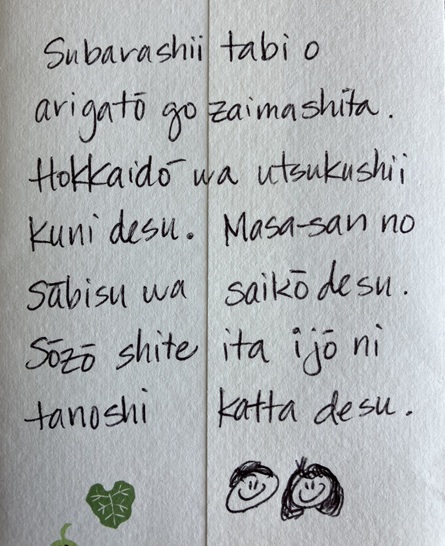 Subarashii tabi o
arigatō go zaimashita.
Hokkaidō wa utsukushii
kuni desu. Masa-san no
Sābisu wa saikō desu.
Sōzō shite ita ijō ni
tanoshi katta desu.